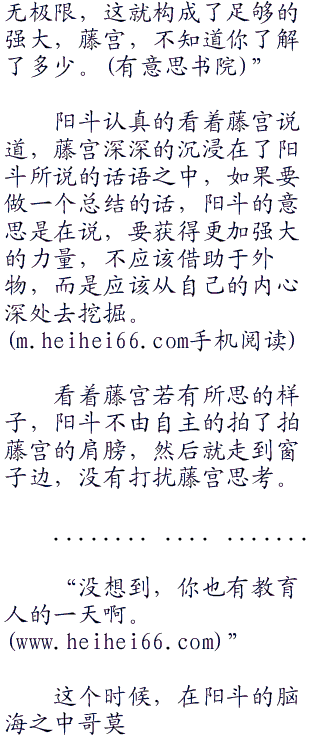 无极限，这就构成了足够的
强大，藤宫，不知道你了解
了多少。(有意思书院)”
阳斗认真的看着藤宫说
道，藤宫深深的沉浸在了阳
斗所说的话语之中，如果要
做一个总结的话，阳斗的意
思是在说，要获得更加强大
的力量，不应该借助于外
物，而是应该从自己的内心
深处去挖掘。
(m.heihei66.com手机阅读)
看着藤宫若有所思的样
子，阳斗不由自主的拍了拍
藤宫的肩膀，然后就走到窗
子边，没有打扰藤宫思考。
........ .... .......
“没想到，你也有教育
人的一天啊。
(www.heihei66.com)”
这个时候，在阳斗的脑
海之中哥莫